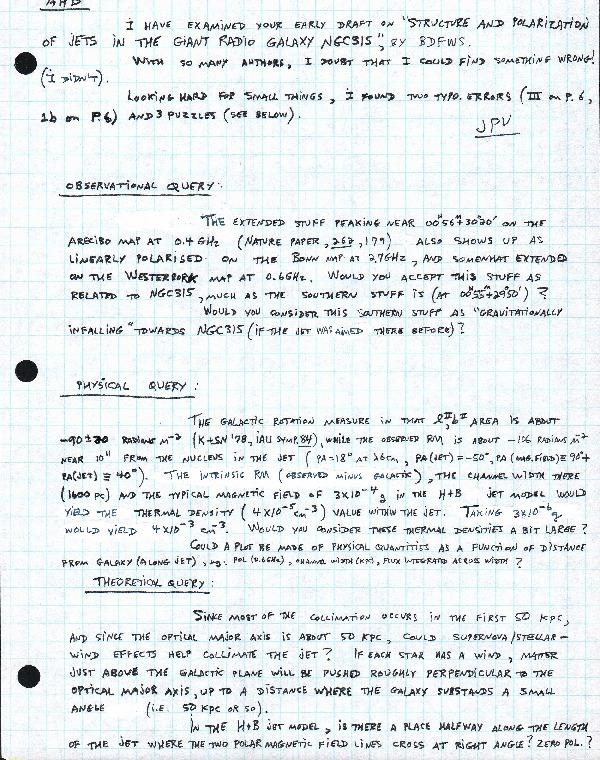 AHB
I HAVE EXAMINED YOUR EARLY DRAFT ON "STRUCTURE AND POLARIZATION
OF JETS IN THE GIANT RADIO GALAXY NGC315", BY BDFWS.
WITH SO MANY AUTHORS, I DOUBT THAT I COULD FIND SOMETHING WRONG!
(I DIDN'T).
LOOKING HARD FOR SMALL THINGS, I FOUND TWO TYPO. ERRORS (III ON P.6,
1b ON P.6) AND 3 PUZZLES (SEE BELOW).
JPV
OBSERVATIONAL QUERY:
THE EXTENDED STUFF PEAKING NEAR 00ʰ56ᵐ+30°20' ON THE
ARECIBO MAP AT 0.4GHz (NATURE PAPER, 262, 179) ALSO SHOWS UP AS
LINEARLY POLARISED ON THE BONN MAP AT 2.7GHz, AND SOMEWHAT EXTENDED
ON THE WESTERBORK MAP AT 0.6GHz. WOULD YOU ACCEPT THIS STUFF AS
RELATED TO NGC315, MUCH AS THE SOUTHERN STUFF IS (AT 00ʰ55ᵐ+29°50') ?
WOULD YOU CONSIDER THIS SOUTHERN STUFF AS "GRAVITATIONALLY
INFALLING" TOWARDS NGC315 (IF THE JET WAS AIMED THERE BEFORE)?
PHYSICAL QUERY:
THE GALACTIC ROTATION MEASURE IN THAT ℓᴵᴵ,bᴵᴵ AREA IS ABOUT
RADIANS m⁻² (K+SN '78, IAU SYMP. 84), WHILE THE OBSERVED RM IS ABOUT RADIANS m⁻²
NEAR 10" FROM THE NUCLEUS IN THE JET (PA=18° AT λ6cm, PA(JET)=-50°, PA(MAG.FIELD)≡90°+
PA(JET)≡40°). THE INTRINSIC RM (OBSERVED MINUS GALACTIC), THE CHANNEL WIDTH THERE
(1600 PC) AND THE TYPICAL MAGNETIC FIELD OF 3x10⁻⁴g IN THE H+B JET MODEL WOULD
YIELD THE THERMAL DENSITY (4x10⁻⁵cm⁻³) VALUE WITHIN THE JET. TAKING 3x10⁻⁶g
WOULD YIELD 4x10⁻³ cm⁻³. WOULD YOU CONSIDER THESE THERMAL DENSITIES A BIT LARGE?
COULD A PLOT BE MADE OF PHYSICAL QUANTITIES AS A FUNCTION OF DISTANCE
FROM GALAXY (ALONG JET), eg. POL (0.6GHz), CHANNEL WIDTH (KPC), FLUX INTEGRATED ACROSS WIDTH ?
THEORETICAL QUERY:
SINCE MOST OF THE COLLIMATION OCCURS IN THE FIRST 50 KPC,
AND SINCE THE OPTICAL MAJOR AXIS IS ABOUT 50 KPC, COULD SUPERNOVA/STELLAR-
WIND EFFECTS HELP COLLIMATE THE JET? IF EACH STAR HAS A WIND, MATTER
JUST ABOVE THE GALACTIC PLANE WILL BE PUSHED ROUGHLY PERPENDICULAR TO THE
OPTICAL MAJOR AXIS, UP TO A DISTANCE WHERE THE GALAXY SUBSTANDS A SMALL
ANGLE (i.e. 50 KPC OR SO).
IN THE H+B JET MODEL, IS THERE A PLACE HALFWAY ALONG THE LENGTH
OF THE JET WHERE THE TWO POLAR MAGNETIC FIELD LINES CROSS AT RIGHT ANGLE? ZERO POL.?